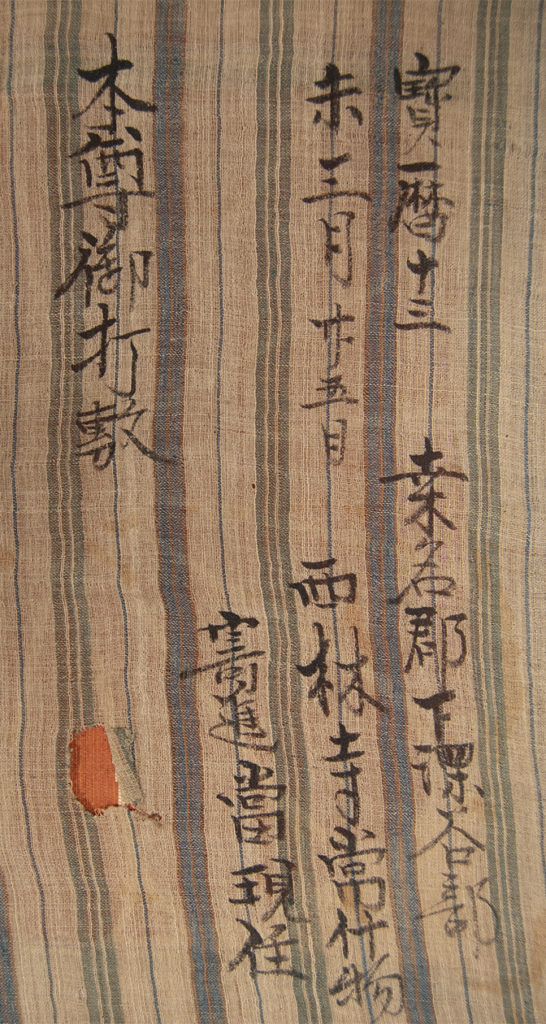 寶暦十三 桒名郡下深谷部
未三月廿五日 西林寺常什物
寄進當現住
本尊御打敷